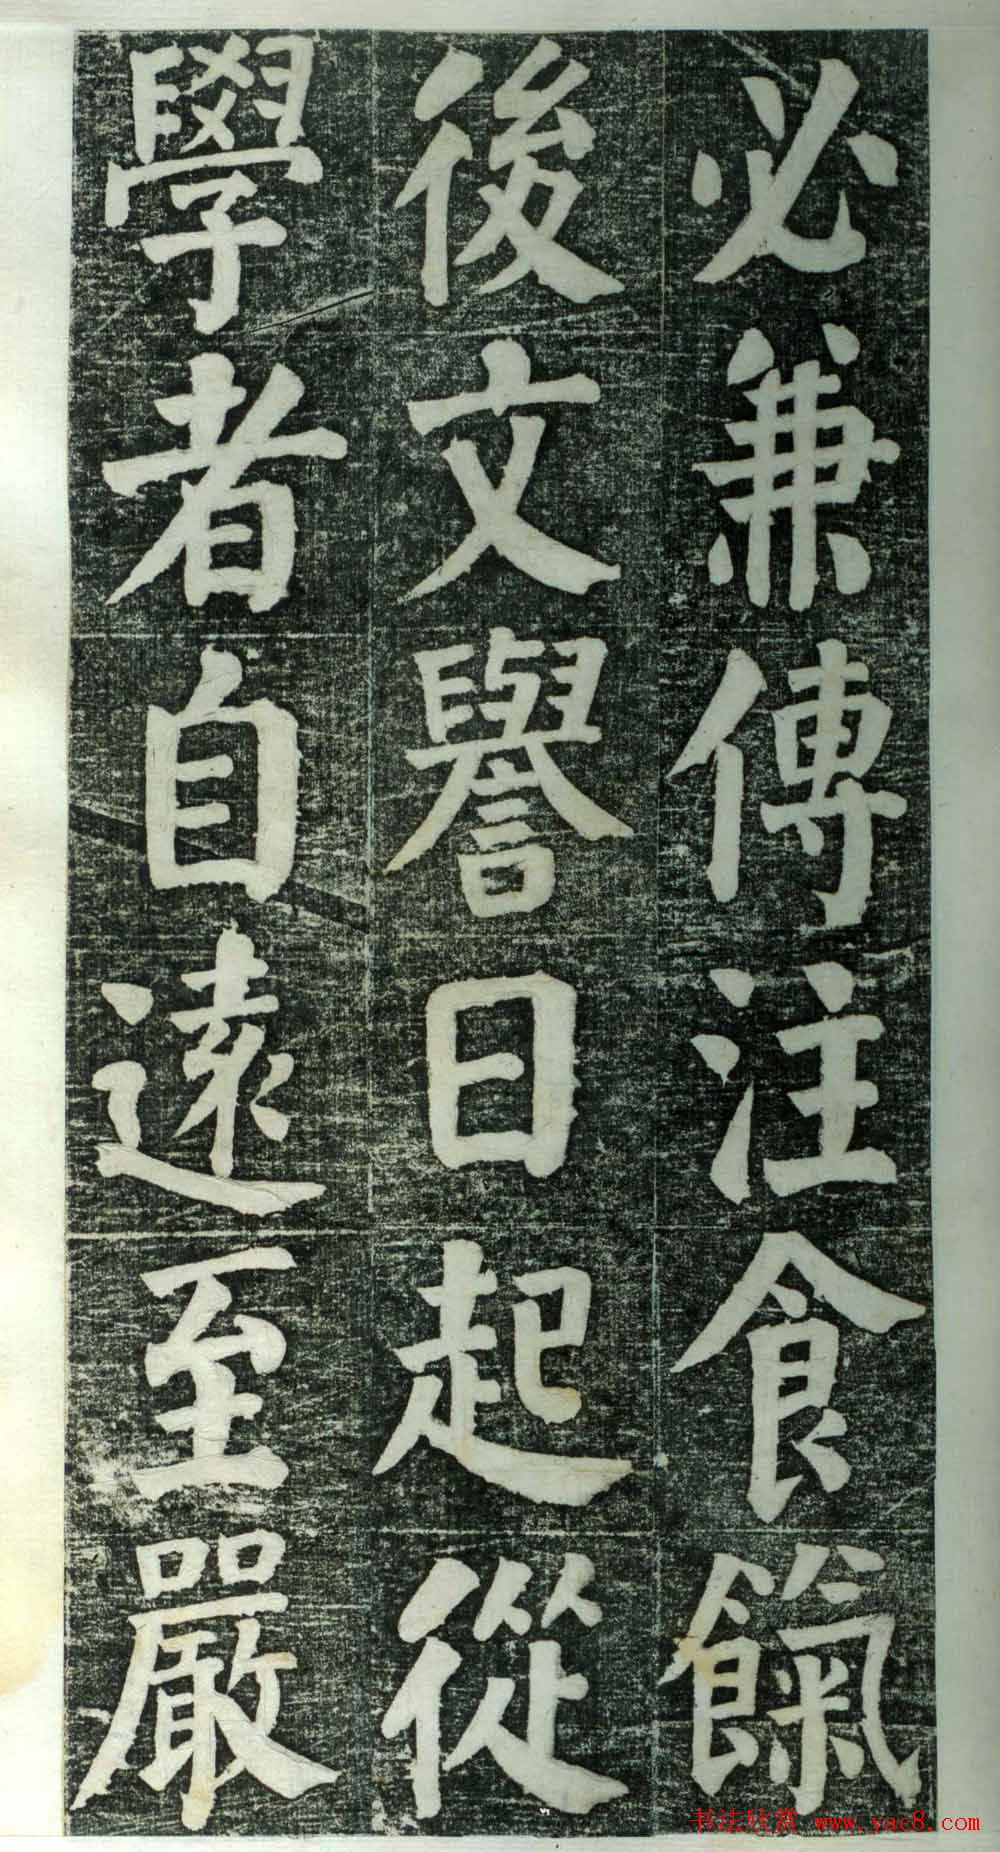 必兼傳注食餼
後文譽日起從
學者自遠至嚴
书法欣赏 www.yac8.com